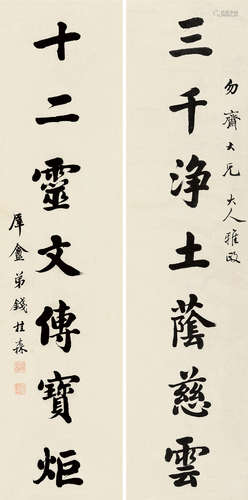 三千淨土蔭慈雲
勿齋大兄大人雅政
十二靈文傳寶炬
犀盦弟錢桂森